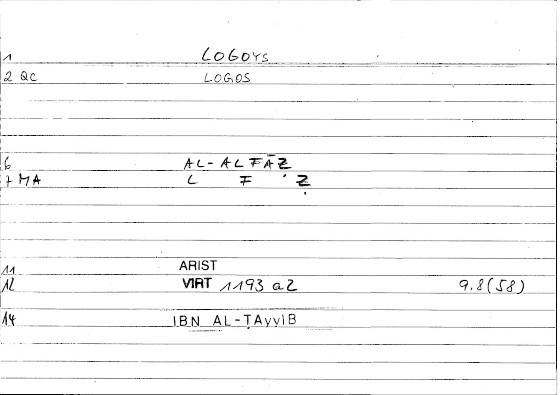 1 LOGOYS
2 QC LOGOS
6 AL-ALFĀẒ
7 MA L F Ẓ
11 ARIST
12 VIRT 1193 a2 9.8(58)
14 IBN AL-ṬAyyIB